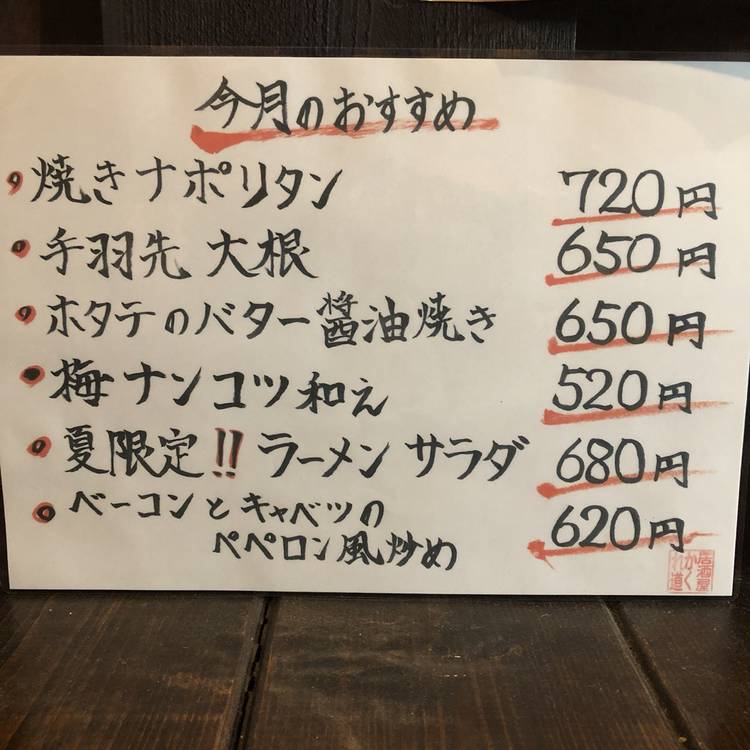 今月のおすすめ
焼きナポリタン 720円
手羽先 大根 650円
ホタテのバター醤油焼き 650円
梅ナンコツ和え 520円
夏限定!! ラーメン サラダ 680円
ベーコンとキャベツの
ペペロン風炒め 620円
居酒屋
かく
れ道